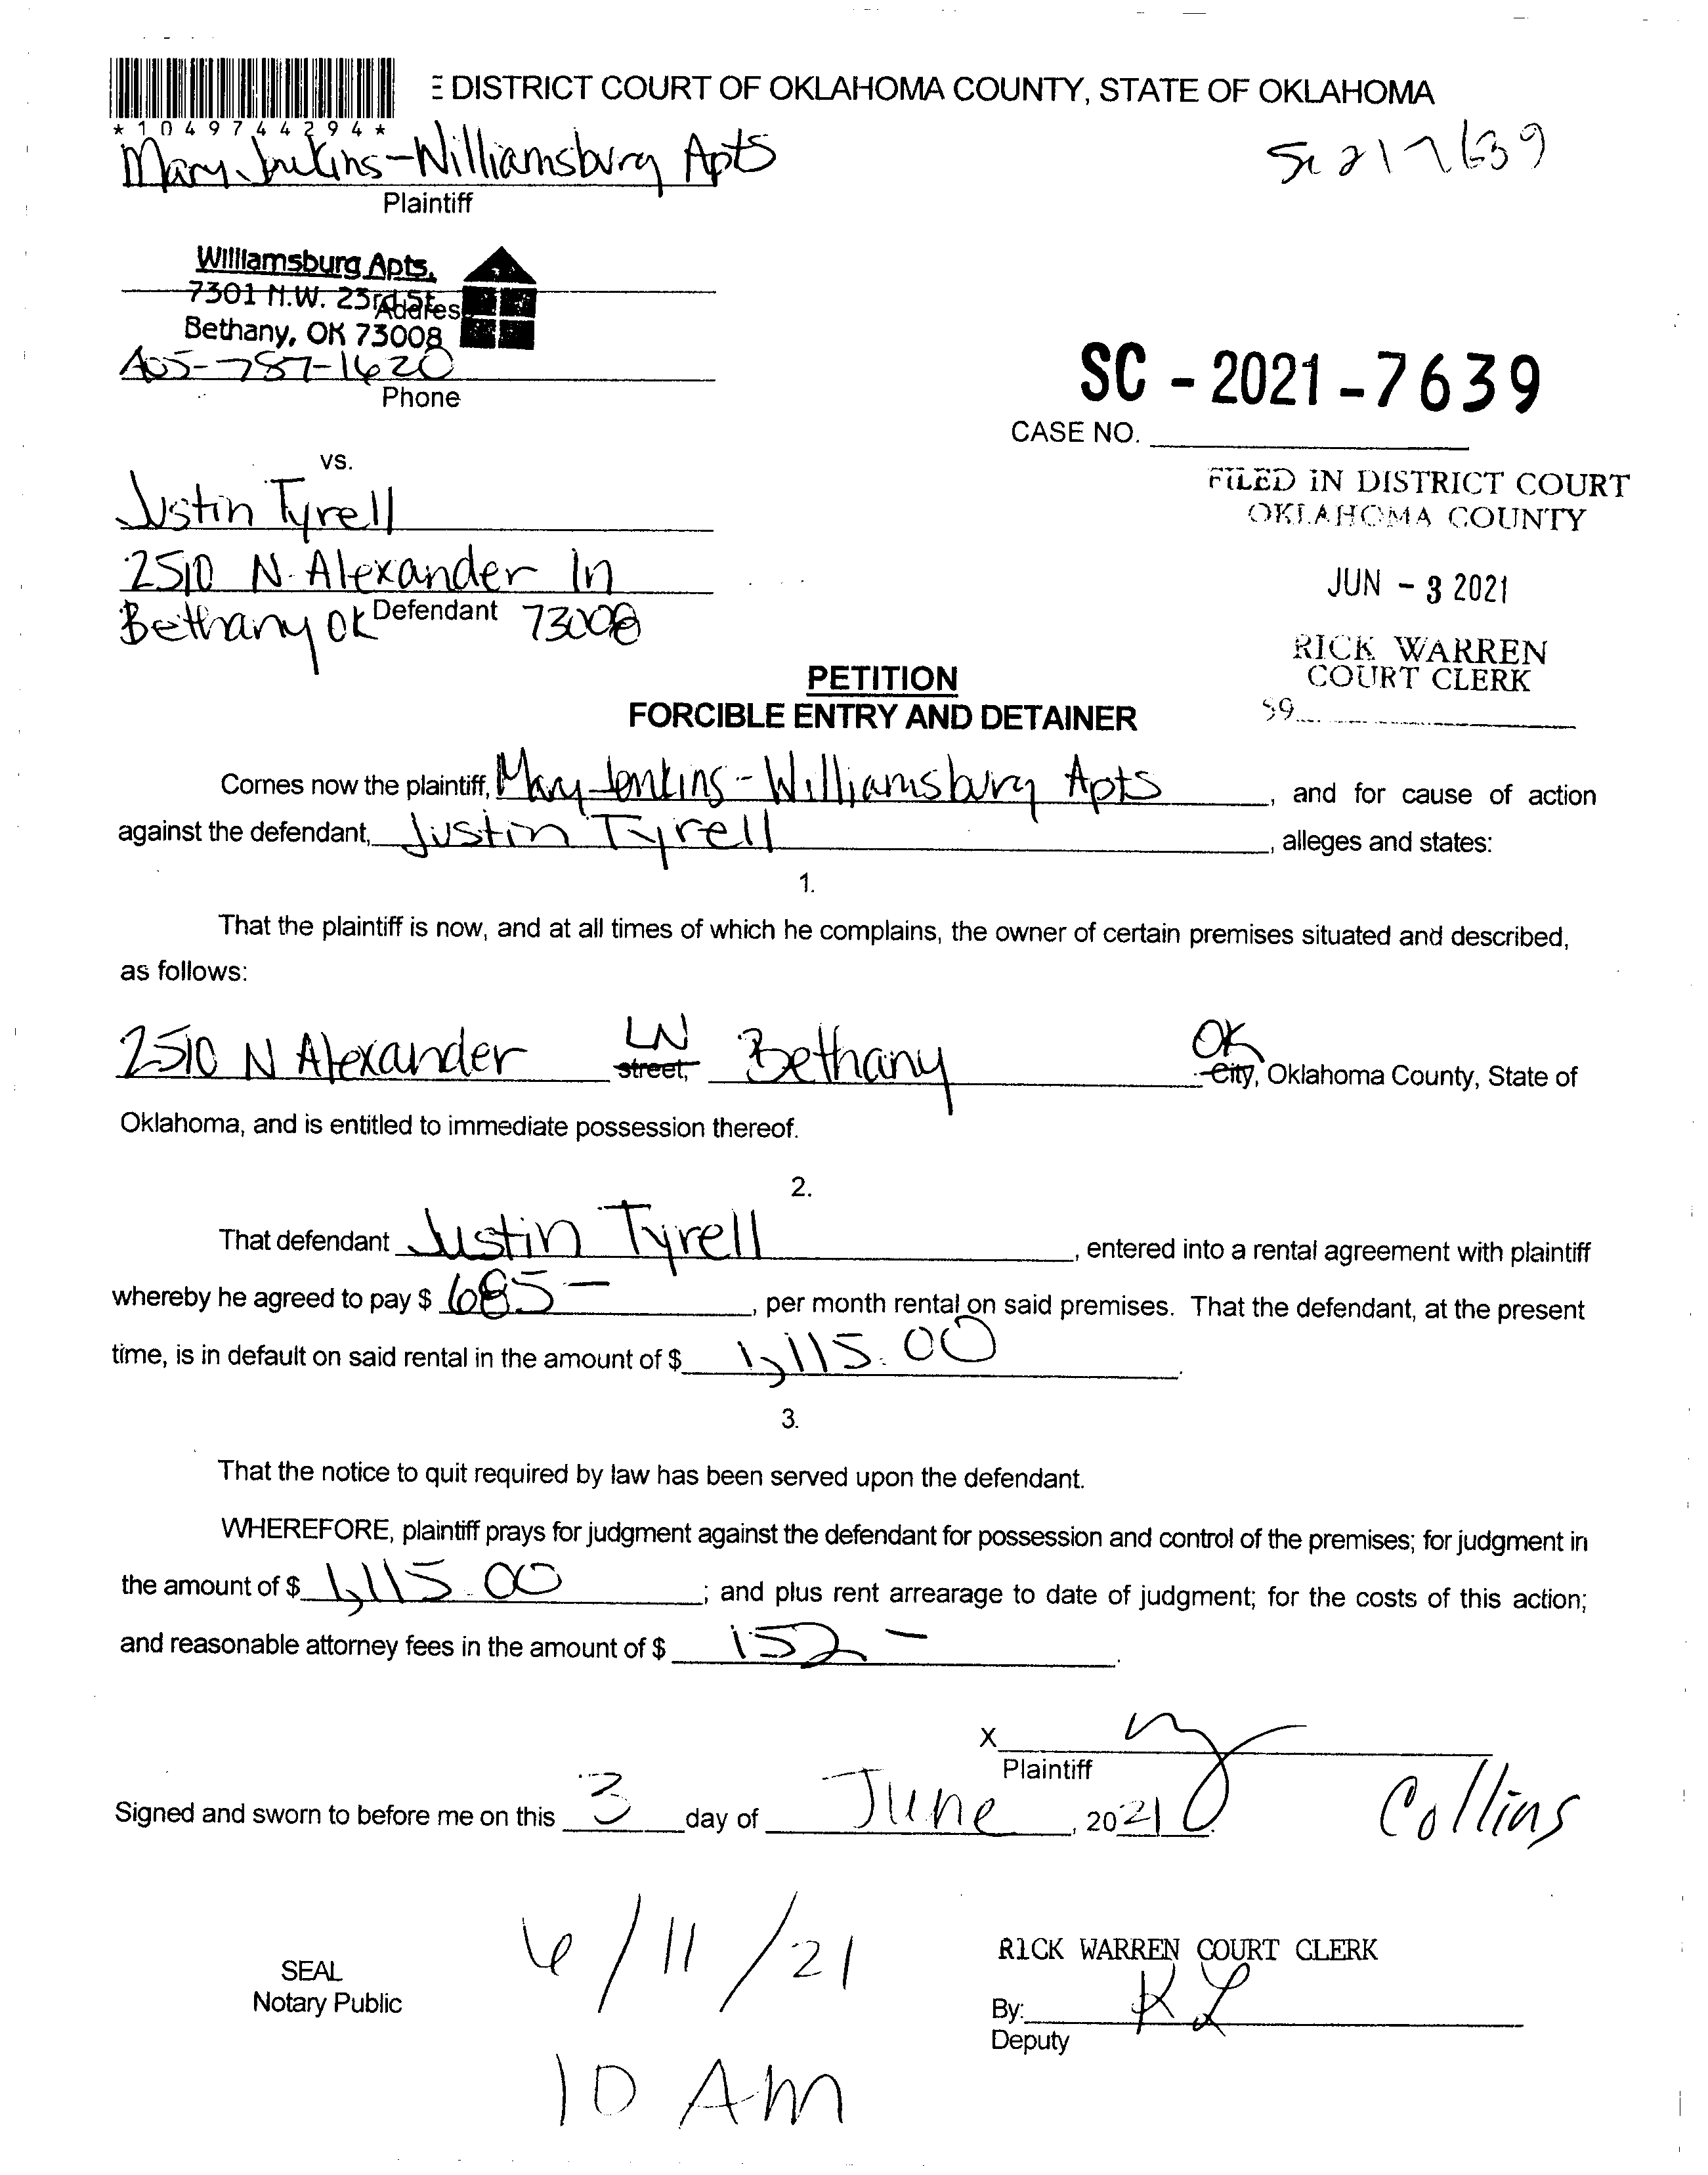 E DISTRICT COURT OF OKLAHOMA COUNTY, STATE OF OKLAHOMA
*1049744294*
Mary Jenkins-Williamsburg Apts
Sc 21 7639
Plaintiff
Williamsburg Apts.
7301 N.W. 23rd St.
Address
Bethany, OK 73008
405-787-1620
Phone
SC - 2021 - 7639
CASE NO.
vs.
FILED IN DISTRICT COURT
OKLAHOMA COUNTY
Justin Tyrell
2510 N. Alexander ln
JUN - 3 2021
Defendant
Bethany OK 73008
RICK WARREN
COURT CLERK
59
PETITION
FORCIBLE ENTRY AND DETAINER
Comes now the plaintiff, Mary Jenkins-Williamsburg Apts, and for cause of action
against the defendant, Justin Tyrell, alleges and states:
1.
That the plaintiff is now, and at all times of which he complains, the owner of certain premises situated and described,
as follows:
2510 N Alexander LN street, Bethany OK City, Oklahoma County, State of
Oklahoma, and is entitled to immediate possession thereof.
2.
That defendant Justin Tyrell, entered into a rental agreement with plaintiff
whereby he agreed to pay $ 685-, per month rental on said premises. That the defendant, at the present
time, is in default on said rental in the amount of $ 1,115.00.
3.
That the notice to quit required by law has been served upon the defendant.
WHEREFORE, plaintiff prays for judgment against the defendant for possession and control of the premises; for judgment in
the amount of $ 1,115.00; and plus rent arrearage to date of judgment; for the costs of this action;
and reasonable attorney fees in the amount of $ 152-.
X
Plaintiff
Signed and sworn to before me on this 3 day of June, 2021.
Collins
SEAL
Notary Public
6/11/21
10 AM
RICK WARREN COURT CLERK
By: KL
Deputy